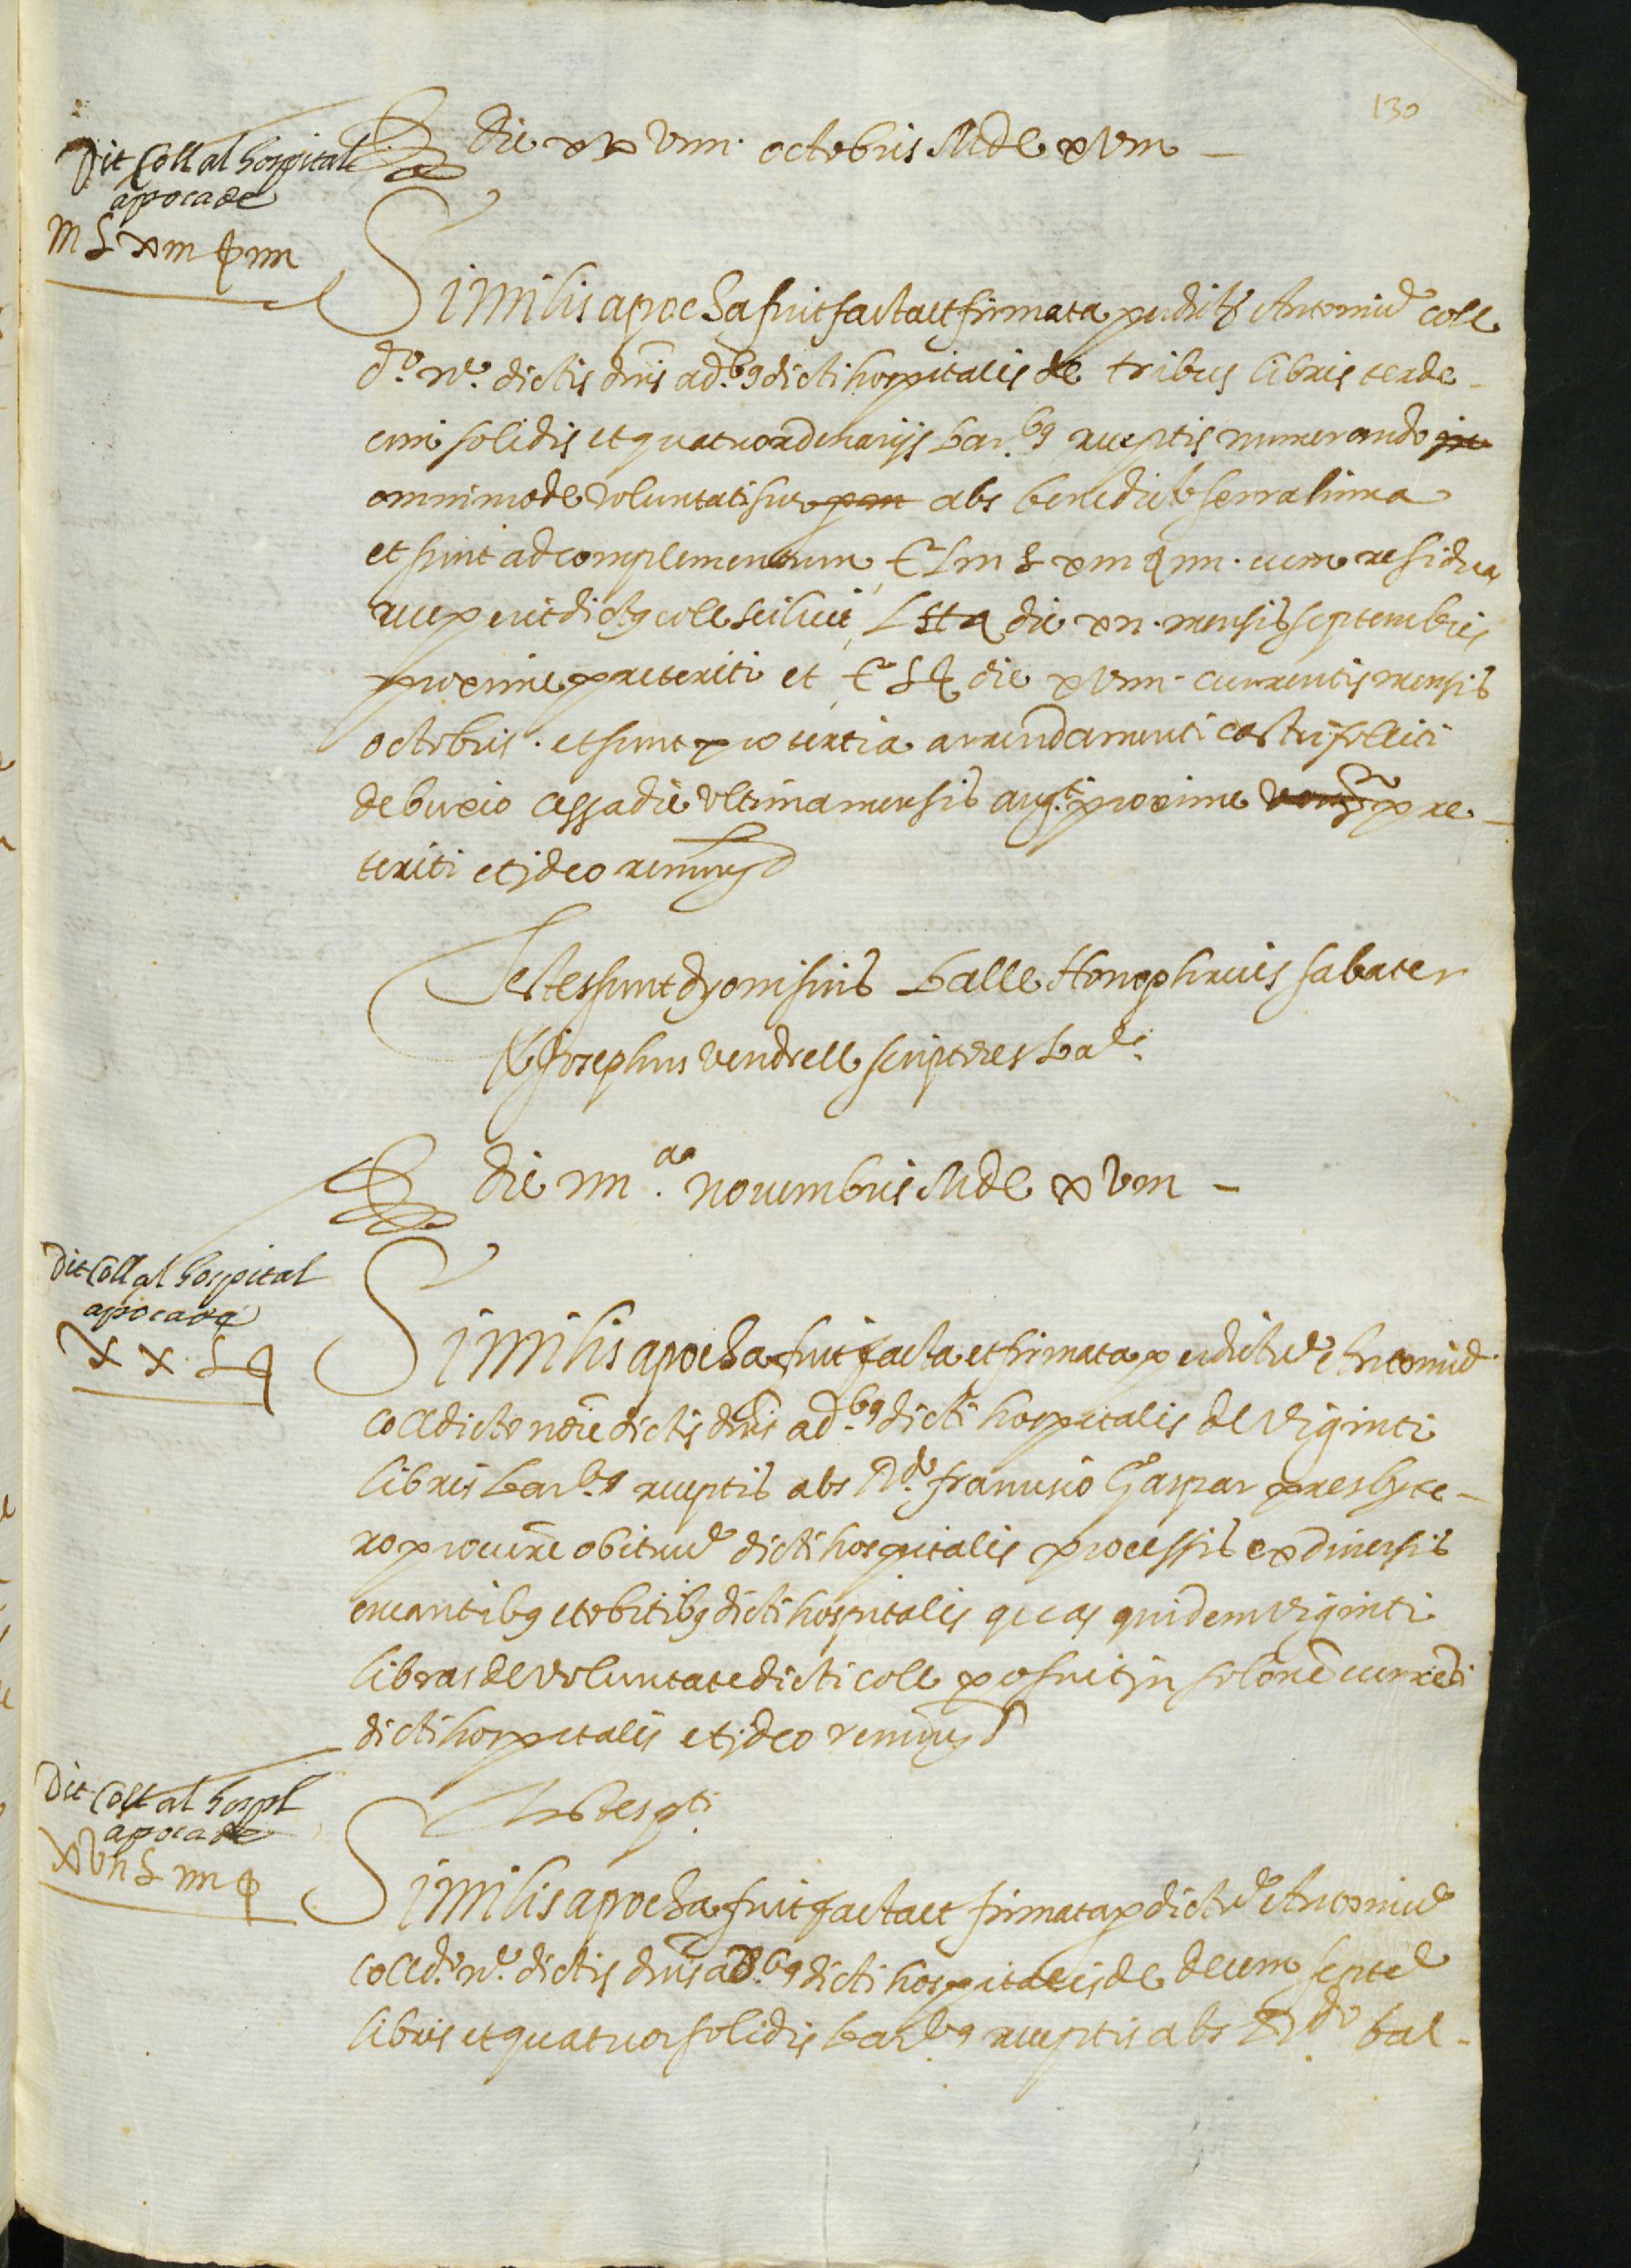 130
die xxviiii octobris Mdlxviii
Dit Coll al hospital
apoca de
iii £ xiii § iiii
Similis apocha fuit facta et firmata per dictũ Antoniũ Coll
d.º n.e dictis dnis ad.bg dicti hospitalis de tribus libris terde-
cim solidis et quatuor denarijs bar.bg receptis numerando
omnimode voluntati sue abs benedicto serralima
et sunt ad complementum
recepit dictg coll scilicet die xii mensis septembris
proxime preteriti et die xviiii currentis mensis
octobris. et sunt pro tertia arrendamenti castri folliti
de buxio cessa die ultima mensis augti proxime pre-
teriti et jdeo renuns
Testes sunt dyonisius balle Honophrius sabater
& Josephus vendrell scriptores ba.
die iiii.ta novembris Mdlxviii
Dit Coll al hospital
apoca de
xx £
Similis apocha fuit facta et firmata per dictũ Antoniũ
Coll dicto noie dictis dnis ad.bg dicti hospitalis de viginti
libris bar.bg receptis abs R.do francisco Gaspar presbyte-
ro procure obituũ dicti hospitalis processis ex diversis
encantibg et obitibg dicti hospitalis quas quidem viginti
libras de voluntate dicti coll posuit in solone curreti
dicti hospitalis et jdeo renuns
Testes pti
Dit Coll al hospl
apoca de
xvii £ iiii §
Similis apocha fuit facta et firmata p dictũ Antoniũ
Coll d.º n.e dictis dnis ad.bg dicti hospitalis de decem septẽ
libris et quatuor solidis bar.bg receptis abs R.do bal-